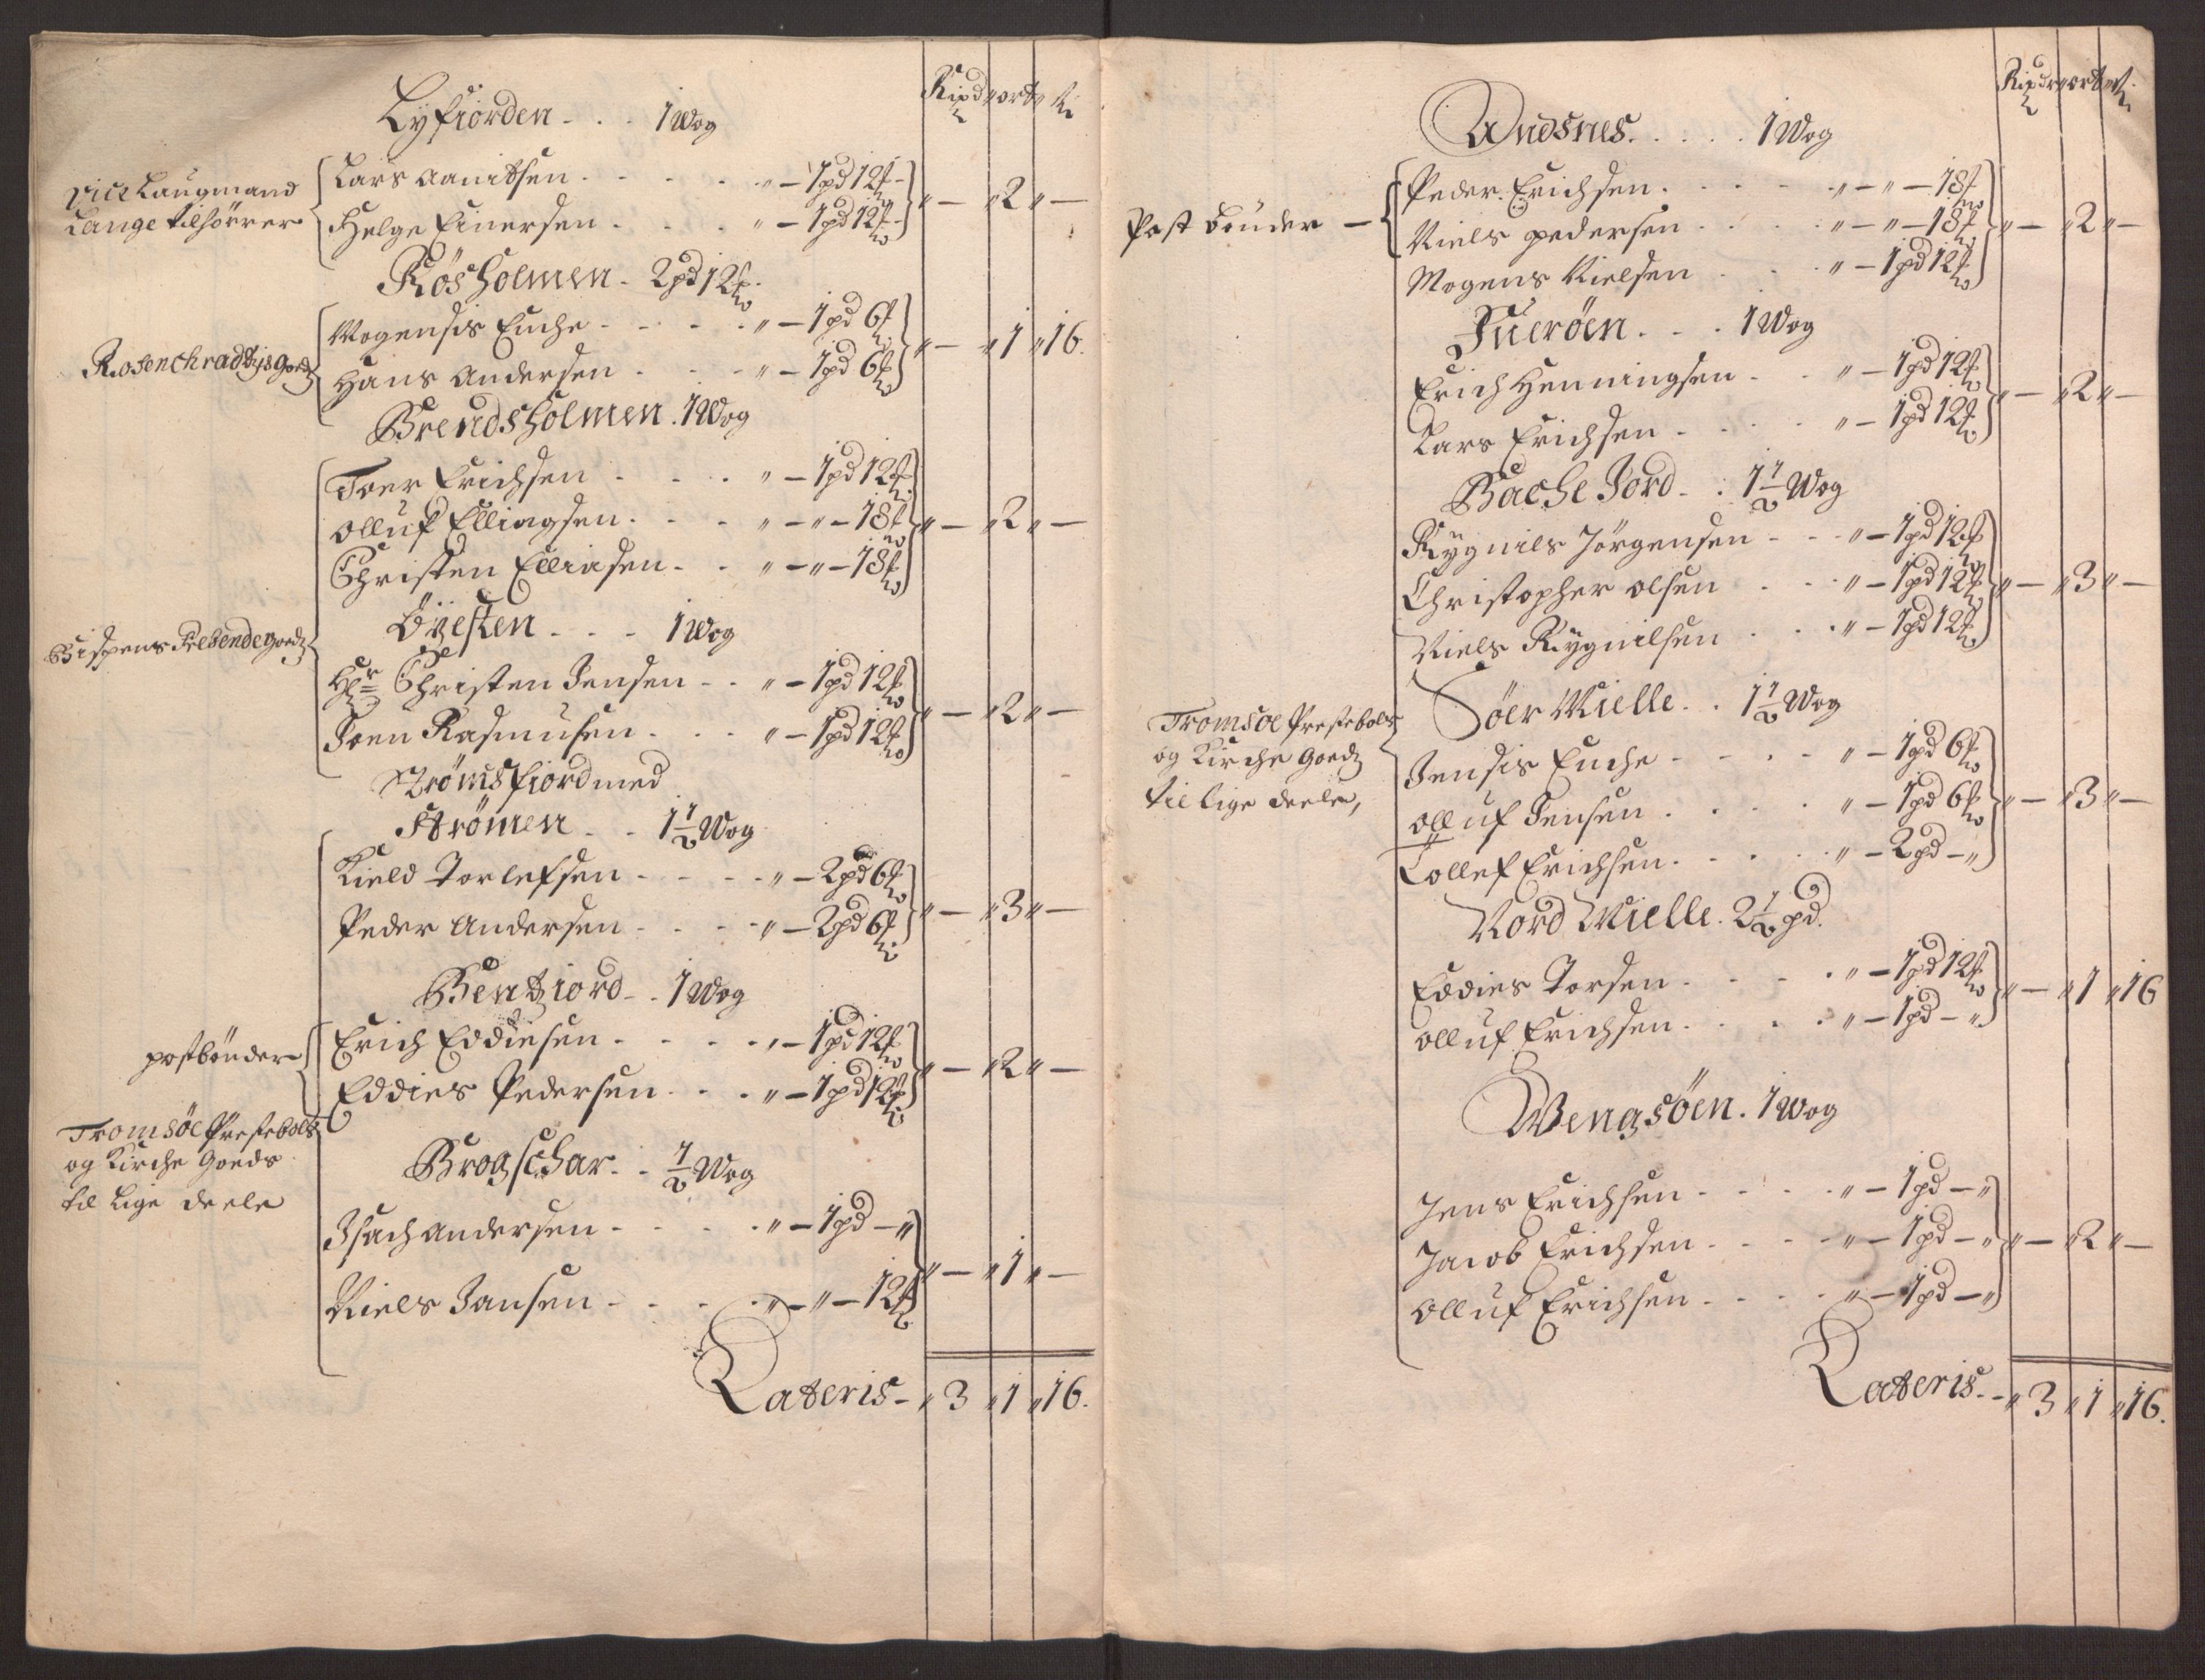 Ripdr ort s
Lyfiorden - . . 1 Wog
vice Laugmand
Lange tilhörrer
Lars Aanitsen . - . . „ - 1pd 12 -
Helge Einersen . . . „ - 1pd 12 - „ - „ 2 „ -
Rösholmen - 2pd 12
Rosenchradtzis Goedz
Mogensis Enche - - . . „ - 1pd 6
Hans Andersen . . - „ - 1pd 6 „ - „ 1 „ 16.
Brendsholmen . 1 Wog
Toer Erichsen . - . „ - 1pd 12
Olluf Ellingsen . - . „ - „ - 18 „ - „ 2 „ -
Christen Elliasen - . „ - „ - 18
Bispens Prebende goedz
Öÿesten . . - 1 Wog
Hr Christen Jensen - . „ - 1pd 12
Joen Rasmusen . . . „ - 1pd 12 „ - „ 2 „ -
Strömsfiord med
Strömen . . 1 1/2 Wog
Kield Torlefsen - - - - „ - 2pd 6
Peder Andersen . - . - „ - 2pd 6 „ - „ 3 „ -
Bentziord - . 1 Wog
postbönder
Erich Eddiesen . . . . „ - 1pd 12
Eddies Pedersen . . . „ - 1pd 12 „ - „ 2 „ -
Tromsöe Prestebols
og Kirche Goeds
til Lige deele
Brogschar . . 1/2 Wog
Isach Andersen - . . „ - 1pd - „
Niels Jansen - . . . „ - „ - 12 „ - „ 1 „ -
Lateris - „ 3 „ 1 „ 16.
Ripdr ort s
Andsnes . . . . . 1 Wog
Post bönder -
Peder Erichsen . . . . „ - „ - 18
Niels pedersen . . . . „ - „ - 18 „ - „ 2 „ -
Mogens Nielsen . . . „ - 1pd 12
Tueröen . . . 1 Wog
Erich Henningsen . . „ - 1pd 12
Lars Erichsen - . . . „ - 1pd 12 „ - „ 2 „ -
Bache Jord - : 1 1/2 Wog
Rÿgnils Jörgensen - . . „ - 1pd 12
Christopher olsen . . . „ - 1pd 12 „ - „ 3 „ -
Niels Rÿgnilsen . . . „ - 1pd 12
Tromsöe Prestebols
og Kirche Goedz
til Lige deele,
Söer Mielle . . 1 1/2 Wog
Jensis Enche . - . . „ - 1pd 6
Olluf Jensen . . . . „ - 1pd 6 „ - „ 3 „ -
Tollef Erichsen . . . . „ - 2pd - „
Nord Mielle . 2 1/2 pd.
Eddies Torsen . . . . „ - 1pd 12
Olluf Erichsen . . . . „ - 1pd - „ „ - „ 1 „ 16
Wengsöen . 1 Wog
Jens Erichsen . . . . „ - 1pd - „
Jacob Erichsen . . . . „ - 1pd - „ „ - „ 2 „ -
Olluf Erichsen . . . . „ - 1pd - „
Lateris - - „ 3 „ 1 „ 16.